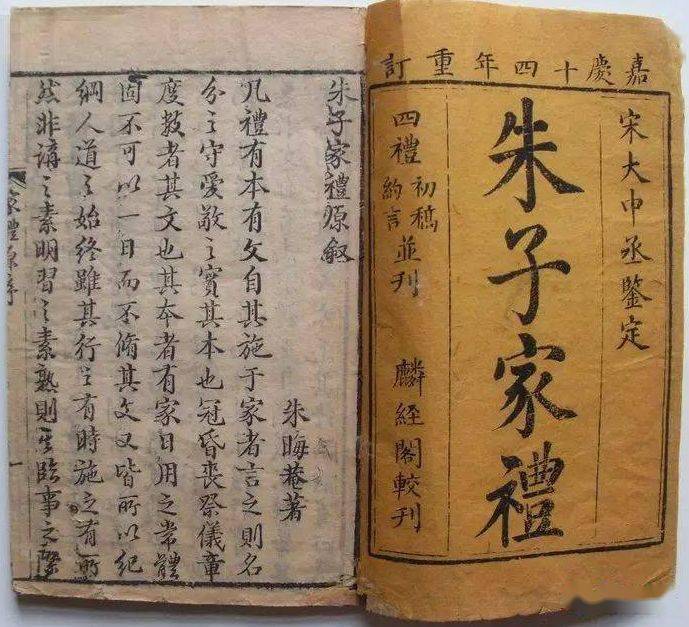 嘉慶十四年重訂
宋大中丞鑒定
朱子家禮
四禮初稿約言並刊
麟經閣較刊
朱子家禮原敘
朱晦菴著
凡禮有本有文自其施于家者言之則名
分之守愛敬之實其本也冠昏喪祭儀章
度数者其文也其本者有家日用之常體
固不可以一日而不脩其文又皆所以紀
綱人道之始終雖其行之有時施之有所
然非講之素明習之素熟則其臨事之際
家禮原序
一